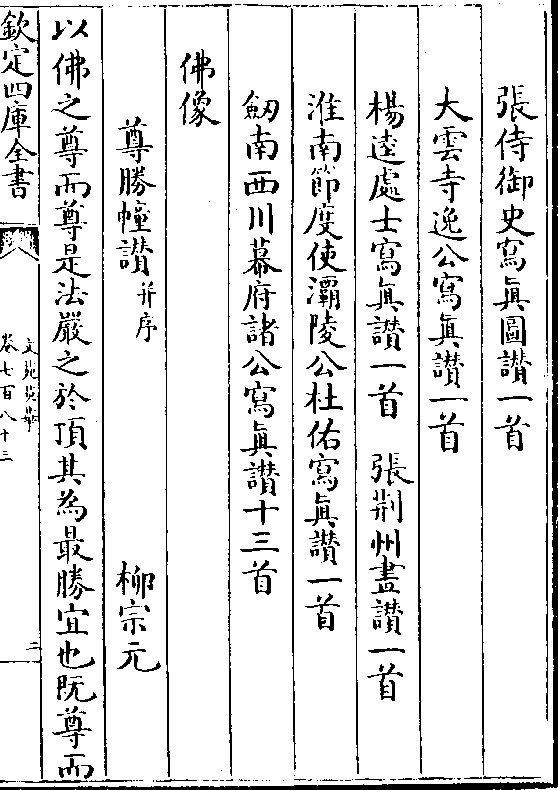 張侍御史寫眞圖讃一首
大雲寺逸公寫眞讃一首
楊逵處士寫眞讃一首　張荆州畫讃一首
淮南節度使灞陵公杜佑寫眞讃一首
劒南西川幕府諸公寫眞讃十三首
佛像
尊勝幢讃并序　柳宗元
以佛之尊而尊是法嚴之於頂其為最勝宜也既尊而
欽定四庫全書
文苑英華
卷七百八十三
二